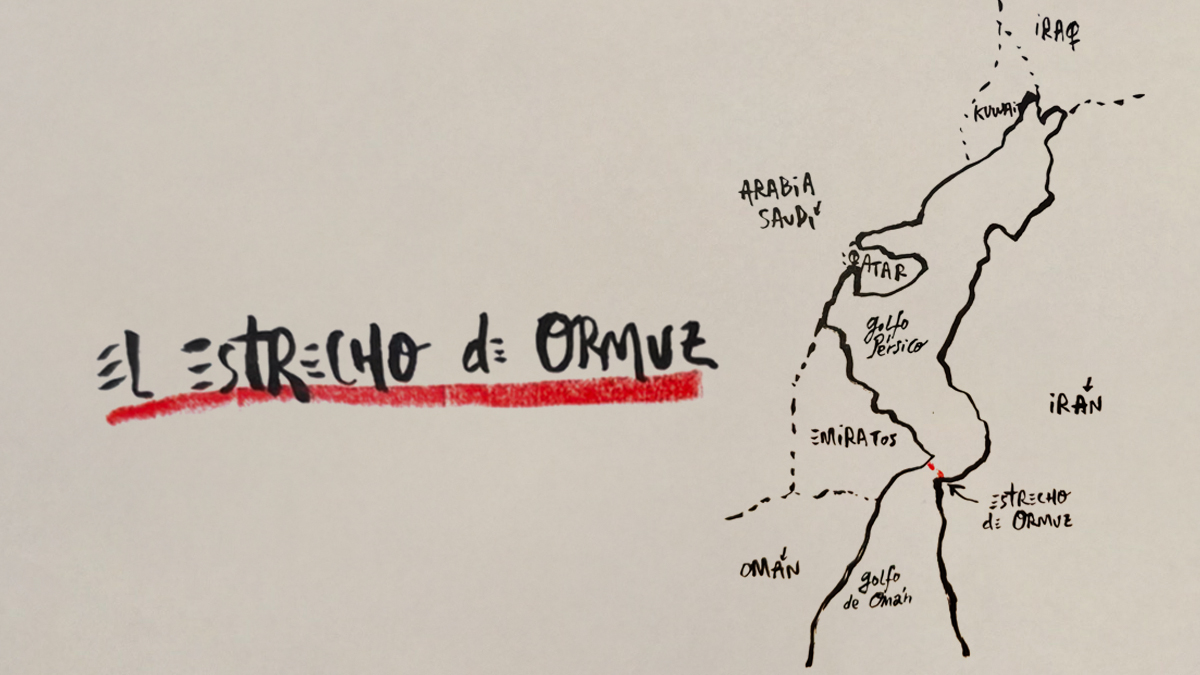 EL ESTRECHO dE ORMUZ
IRAQ
KUWAiT
ARABiA
SAUDí
QATAR
golfo
Pérsico
IRÁN
EMiRATOS
ESTRECHO
dE ORMUZ
OMÁN
golfo
de Omán